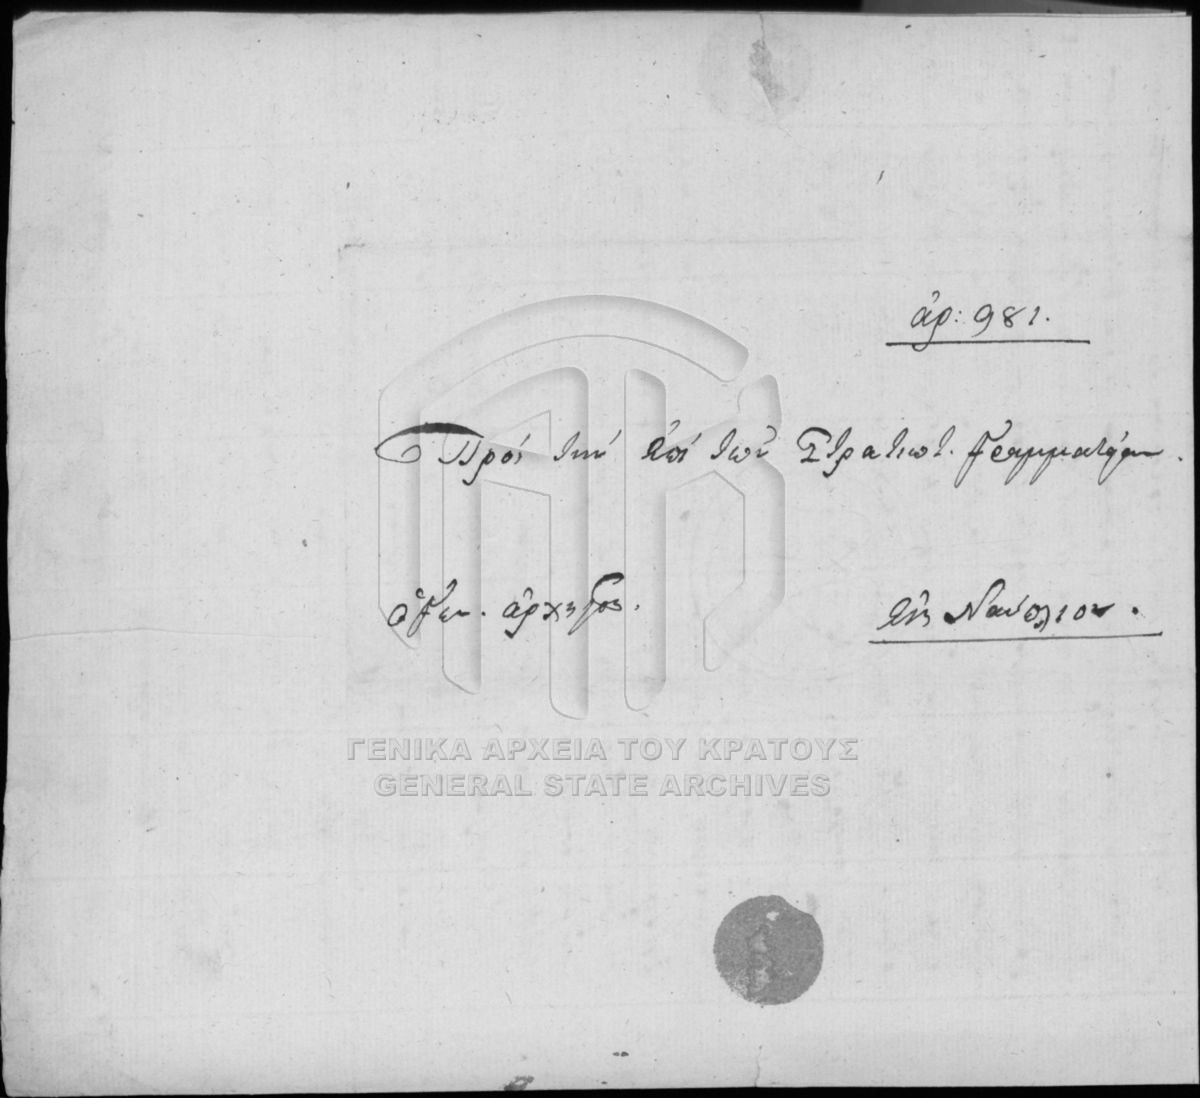 ἀρ: 981.
Πρὸς τὴν ἐπὶ τῶν Στρατιωτ. Γραμματείαν.
ὁ Γεν. ἀρχηγός.
εἰς Ναύπλιον.
ΓΕΝΙΚΑ ΑΡΧΕΙΑ ΤΟΥ ΚΡΑΤΟΥΣ
GENERAL STATE ARCHIVES